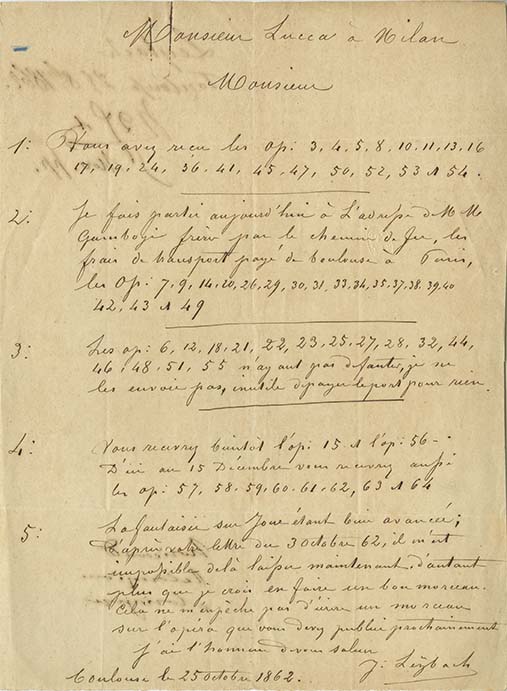 Monsieur Lucca à Milan
Monsieur
1: Vous avez reçu les op: 3, 4, 5, 8, 10, 11, 13, 16
17, 19, 24, 36, 41, 45, 47, 50, 52, 53 & 54.
2: Je fais partir aujourd'hui à L'adresse de M M
frère par le chemin de fer, les
frais de transport payé de Toulouse à Paris,
les Op: 7, 9, 14, 20, 26, 29, 30, 31, 33, 34, 35, 37, 38, 39, 40
42, 43 & 49
3: Les op: 6, 12, 18, 21, 22, 23, 25, 27, 28, 32, 44,
46, 48, 51, 55 n'ayant pas de fautes, je ne
les envoie pas, inutile de payer le port pour rien.
4: Vous recevrez bientôt l'op: 15 & l'op: 56 -
D'ici au 15 Décembre vous recevrez aussi
les op: 57, 58, 59, 60, 61, 62, 63 & 64
5: La fantaisie sur Jone étant bien avancée;
D'après votre lettre du 3 Octobre 62, il m'est
impossible de la laisser maintenant d'autant
plus que je crois en faire un bon morceau.
Cela ne m'empèche pas d'écrire un morceau
sur l'opéra que vous devez publier prochainement
j'ai l'honneur de vous saluer
J: Leybach
Toulouse le 25 octobre 1862.